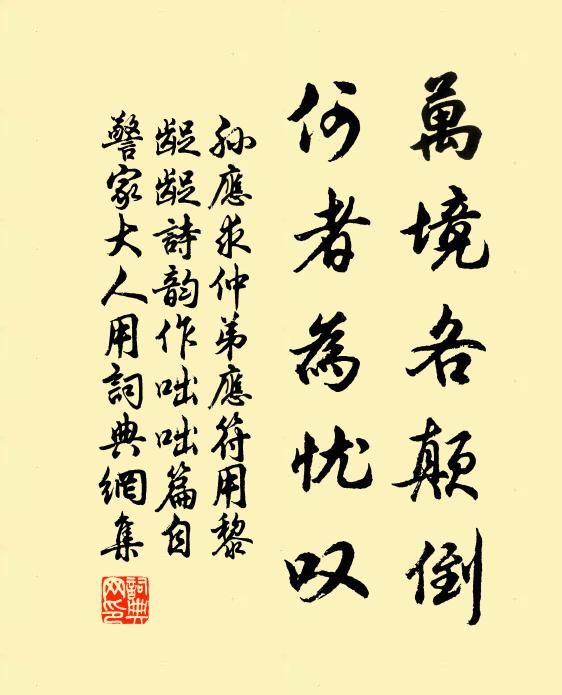 萬境各顛倒
何者為忧叹
孙應求仲弟應符用黎
龊龊詩韵作咄咄篇自
警家大人用詞典網集
詞典网印